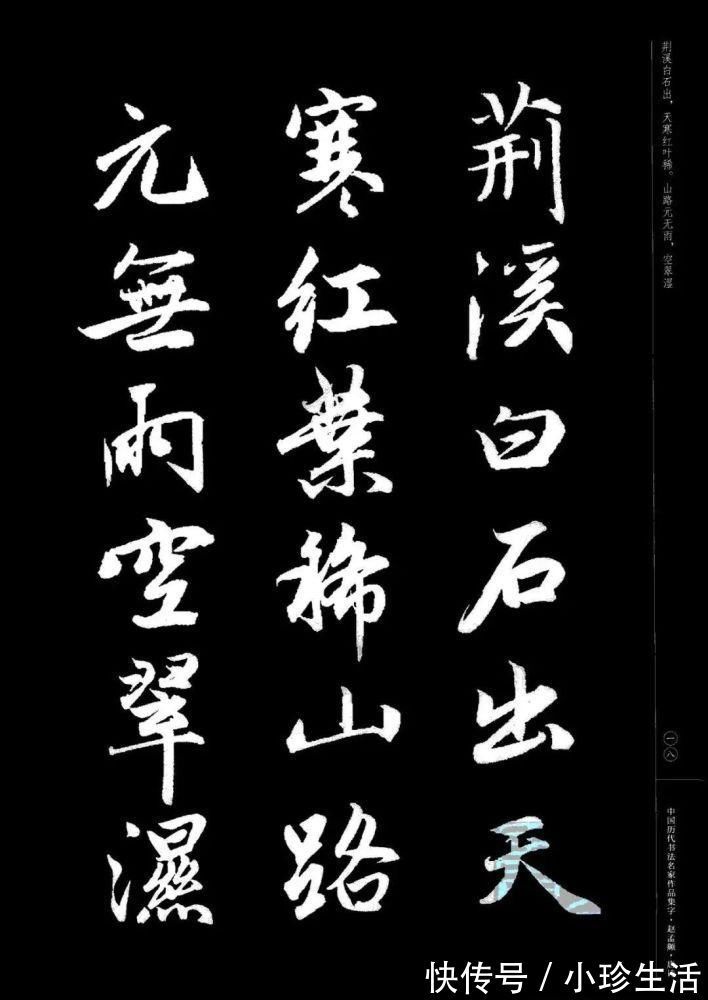 荆溪白石出，天寒红叶稀。山路元无雨，空翠湿
荆溪白石出天
寒红葉稀山路
元無雨空翠濕
一八
中国历代书法名家作品集字·赵孟頫·
快传号／小珍生活